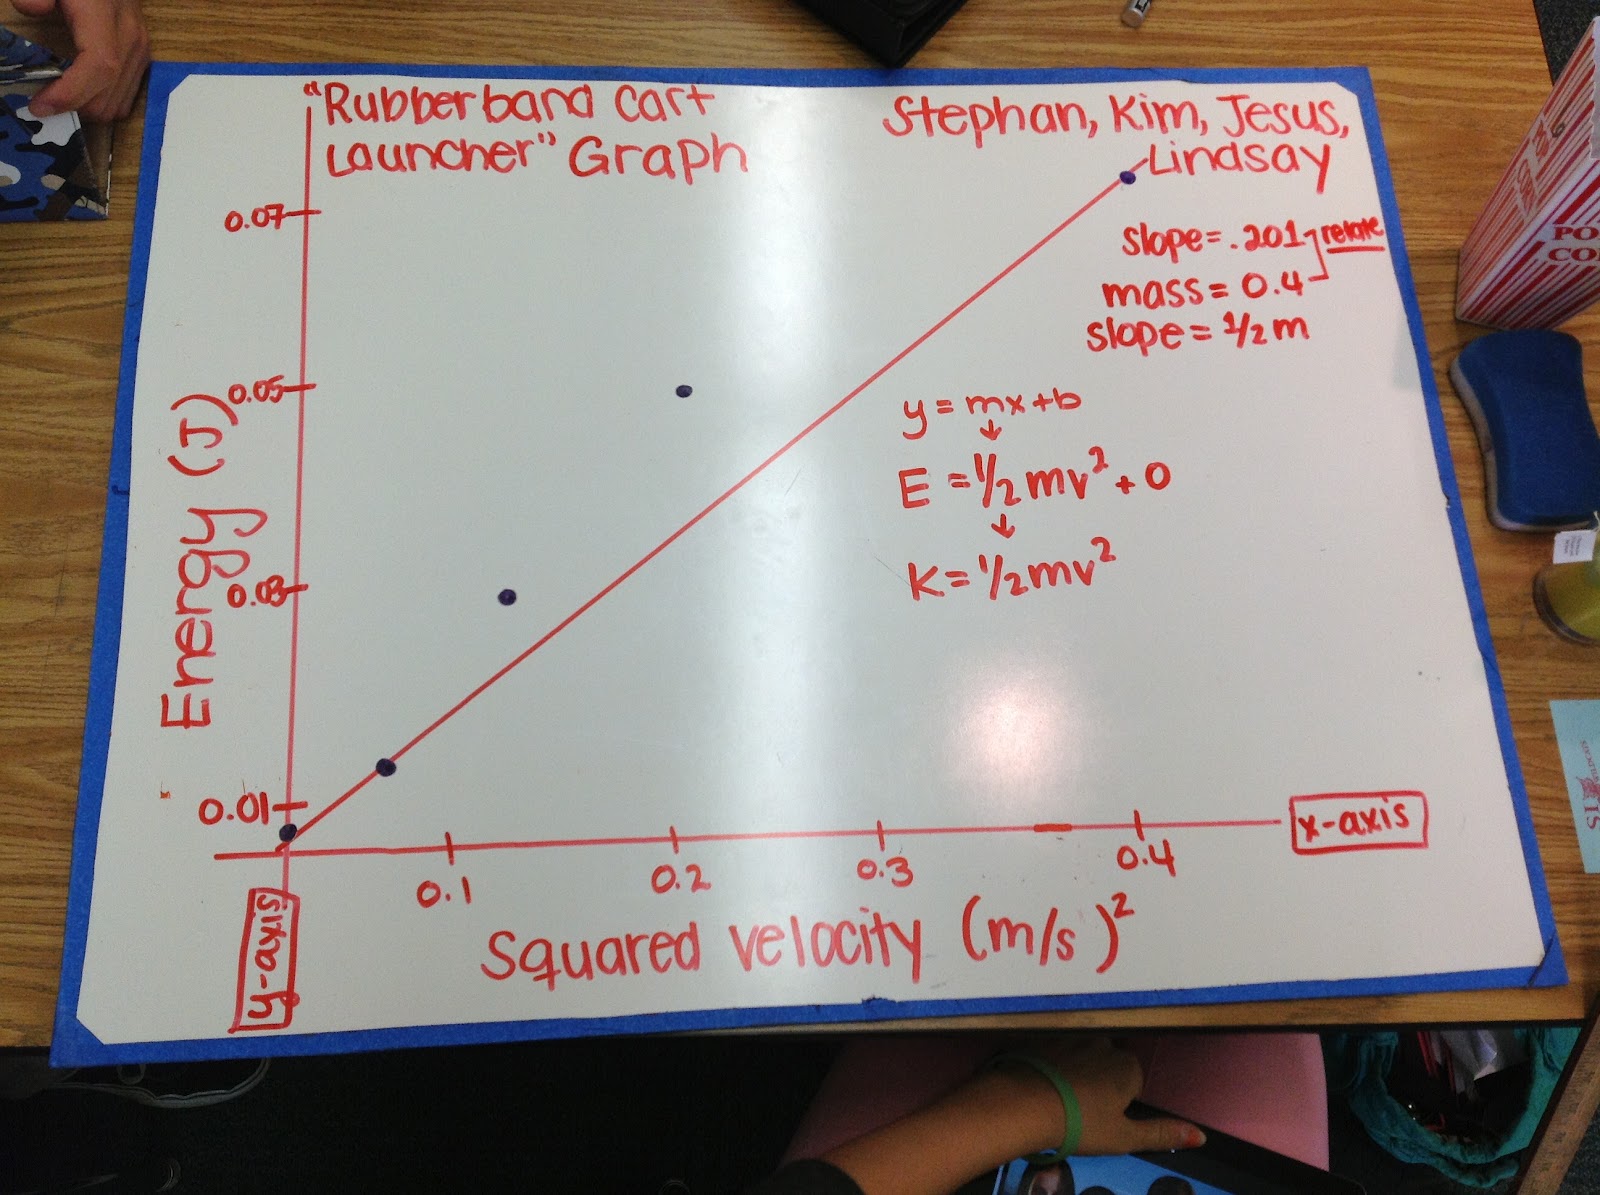 "Rubberband Cart
Launcher" Graph
Stephan, Kim, Jesus,
Lindsay
slope = .201
relate
mass = 0.4
slope = 1/2 m
y = mx+b
↓
E = 1/2 mv² + 0
↓
K = 1/2 mv²
0.07
0.05
0.03
0.01
Energy (J)
y-axis
0.1
0.2
0.3
0.4
x-axis
Squared velocity (m/s)²
PO
CO